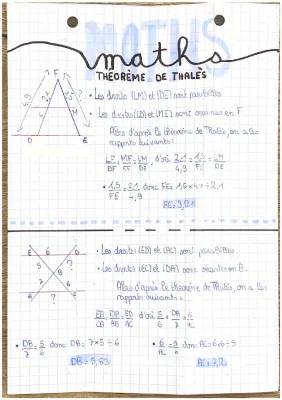 maths
THEOREME DE THALÈS
F
4,9
2,1
1,5
?
L
M
D
E
• Les droites (LM) et (DE) sont parallèles.
• Les droites (LD) et (ME) sont sécantes en F.
Alors d'après le théorème de Thalès, on a les
rapports suivants :
LF/DF = MF/EF = LM/DE d'où 2,1/4,9 = 1,5/FE = LM/DE
• 1,5/FE = 2,1/4,9 donc FE =
E 6 D
5 ?
B
7 ?
A C
• Les droites (ED) et (AC) sont parallèles.
• Les droites (EC) et (DA) sont sécantes en B.
Alors d'après le théorème de Thalès, on a les
rapports suivants :
EB/CB = DB/AB = ED/AC d'où
• DB/7 = 5/6 donc DB = 7×5÷6
DB = 5,83
donc AC = 6×6÷5
AC = 7,2